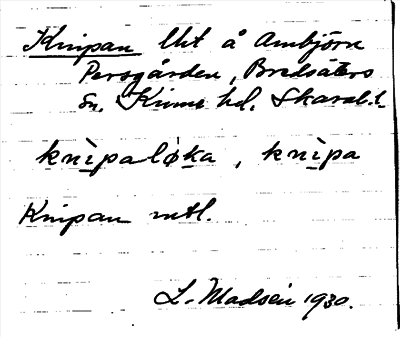 Knipan lht å Ambjörn
Persgården, Bredsäters
sn. Kinne hd. Skarab.l.
knìpaløka, knìpa
Knipan mtl.
L. Madsén 1930.